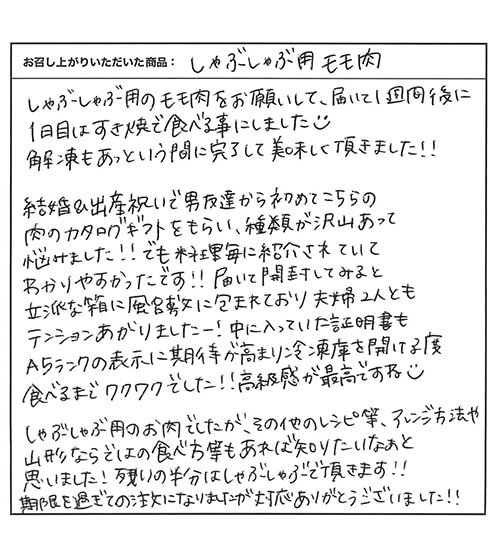 お召し上がりいただいた商品： しゃぶしゃぶ用モモ肉
しゃぶしゃぶ用のモモ肉をお願いして、届いて1週間後に
1日目はすき焼で食べる事にしました
解凍もあっという間に完了して美味しく頂きました!!
結婚&出産祝いで男友達から初めてこちらの
肉のカタログギフトをもらい、種類が沢山あって
悩みました!!でも料理毎に紹介されていて
わかりやすかったです!!届いて開封してみると
立派な箱に風呂敷に包まれており夫婦2人とも
テンションあがりましたー!中に入っていた証明書も
A5ランクの表示に期待が高まり冷凍庫を開ける度
食べるまでワクワクでした!!高級感が最高ですね
しゃぶしゃぶ用のお肉でしたが、その他のレシピ等、アレンジ方法や
山形ならではの食べ方等もあれば知りたいなぁと
思いました!残りの半分はしゃぶしゃぶで頂きます!!
期限を過ぎての注文になりましたが対応ありがとうございました!!